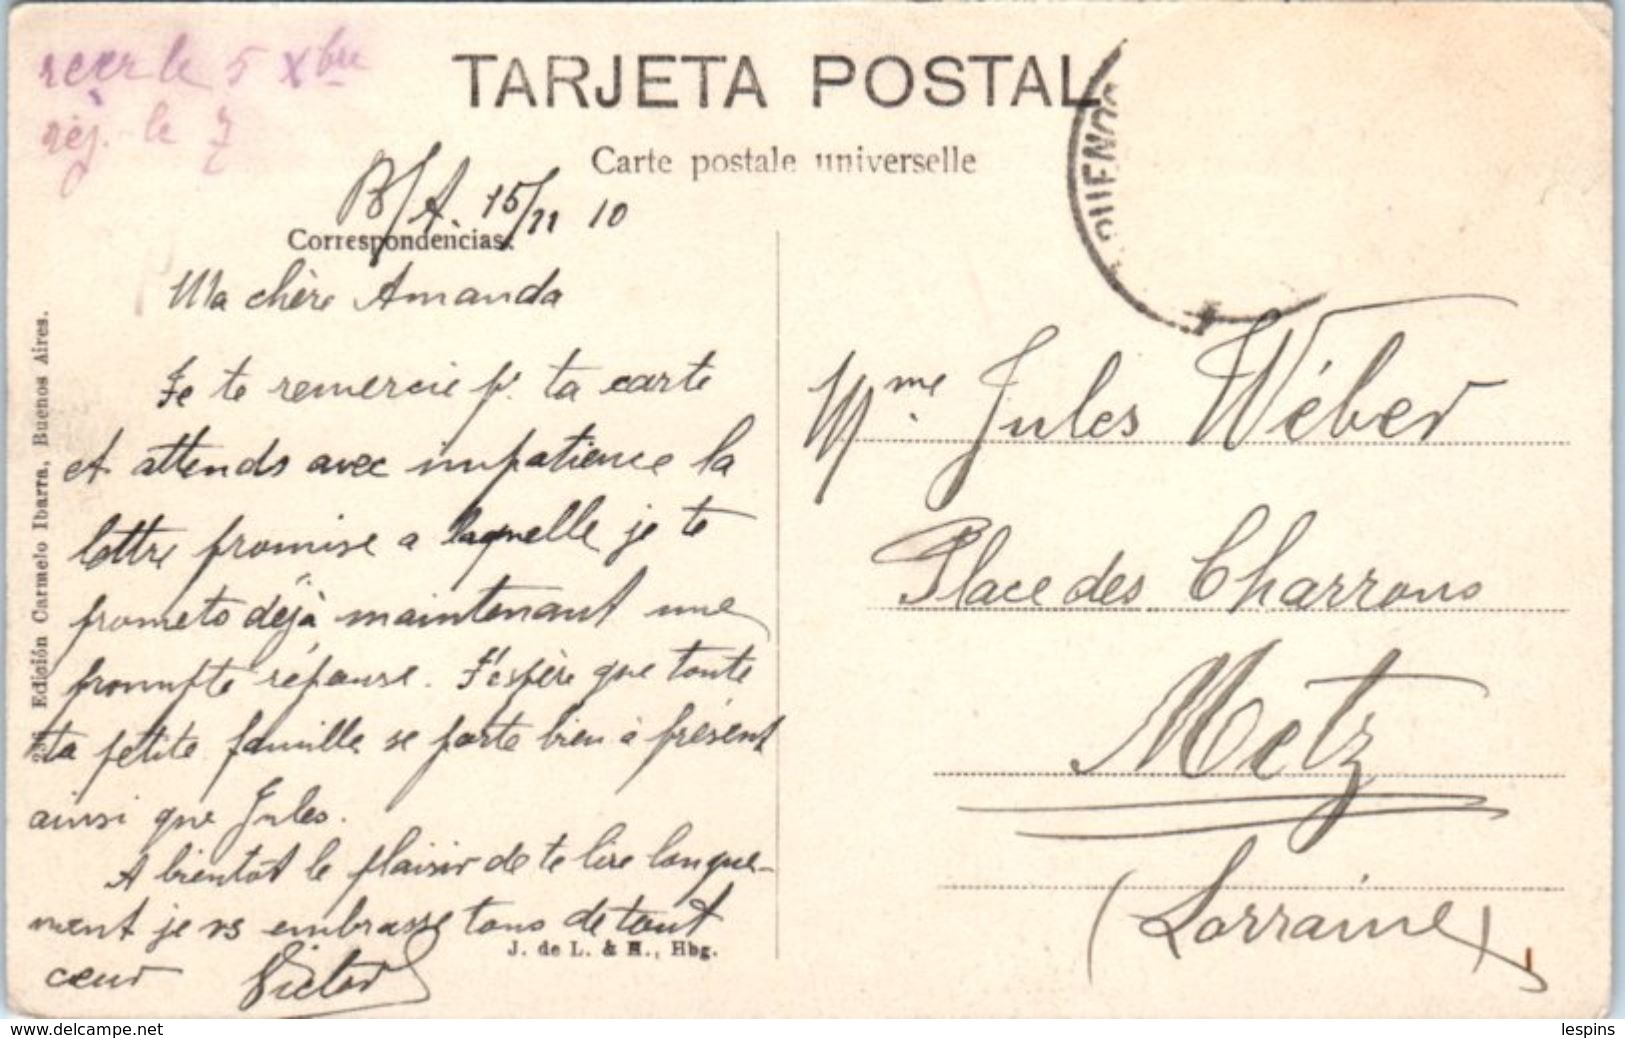 reçu le 5 Xbre
rép. le 7
TARJETA POSTAL
Carte postale universelle
BUENOS
B/A. 15/11 10
Correspondencias.
Ma chère Amanda
Je te remercie p. ta carte
et attends avec impatience la
lettre promise a laquelle je te
promets déjà maintenant une
prompte réponse. J'espère que toute
ta petite famille se porte bien à présent
ainsi que Jules.
A bientôt le plaisir de te lire longue-
ment je vs embrasse tous de tout
cœur Victor
J. de L. & H., Hbg.
Edición Carmelo Ibarra, Buenos Aires.
Mme. Jules Wéber
Place des Charrons
Metz
(Lorraine)
www.delcampe.net
lespins